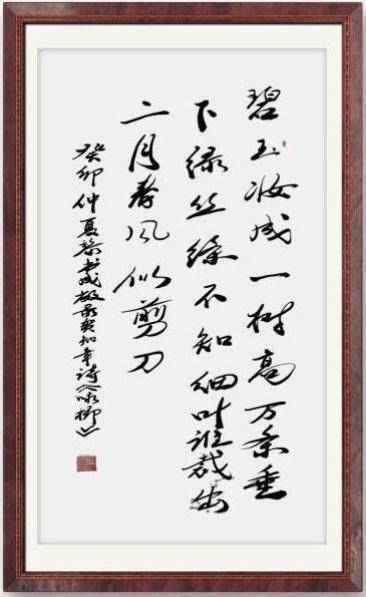 碧玉妆成一树高万条垂
下绿丝绦不知细叶谁裁出
二月春风似剪刀
癸卯仲夏书成敬录贺知章诗《咏柳》